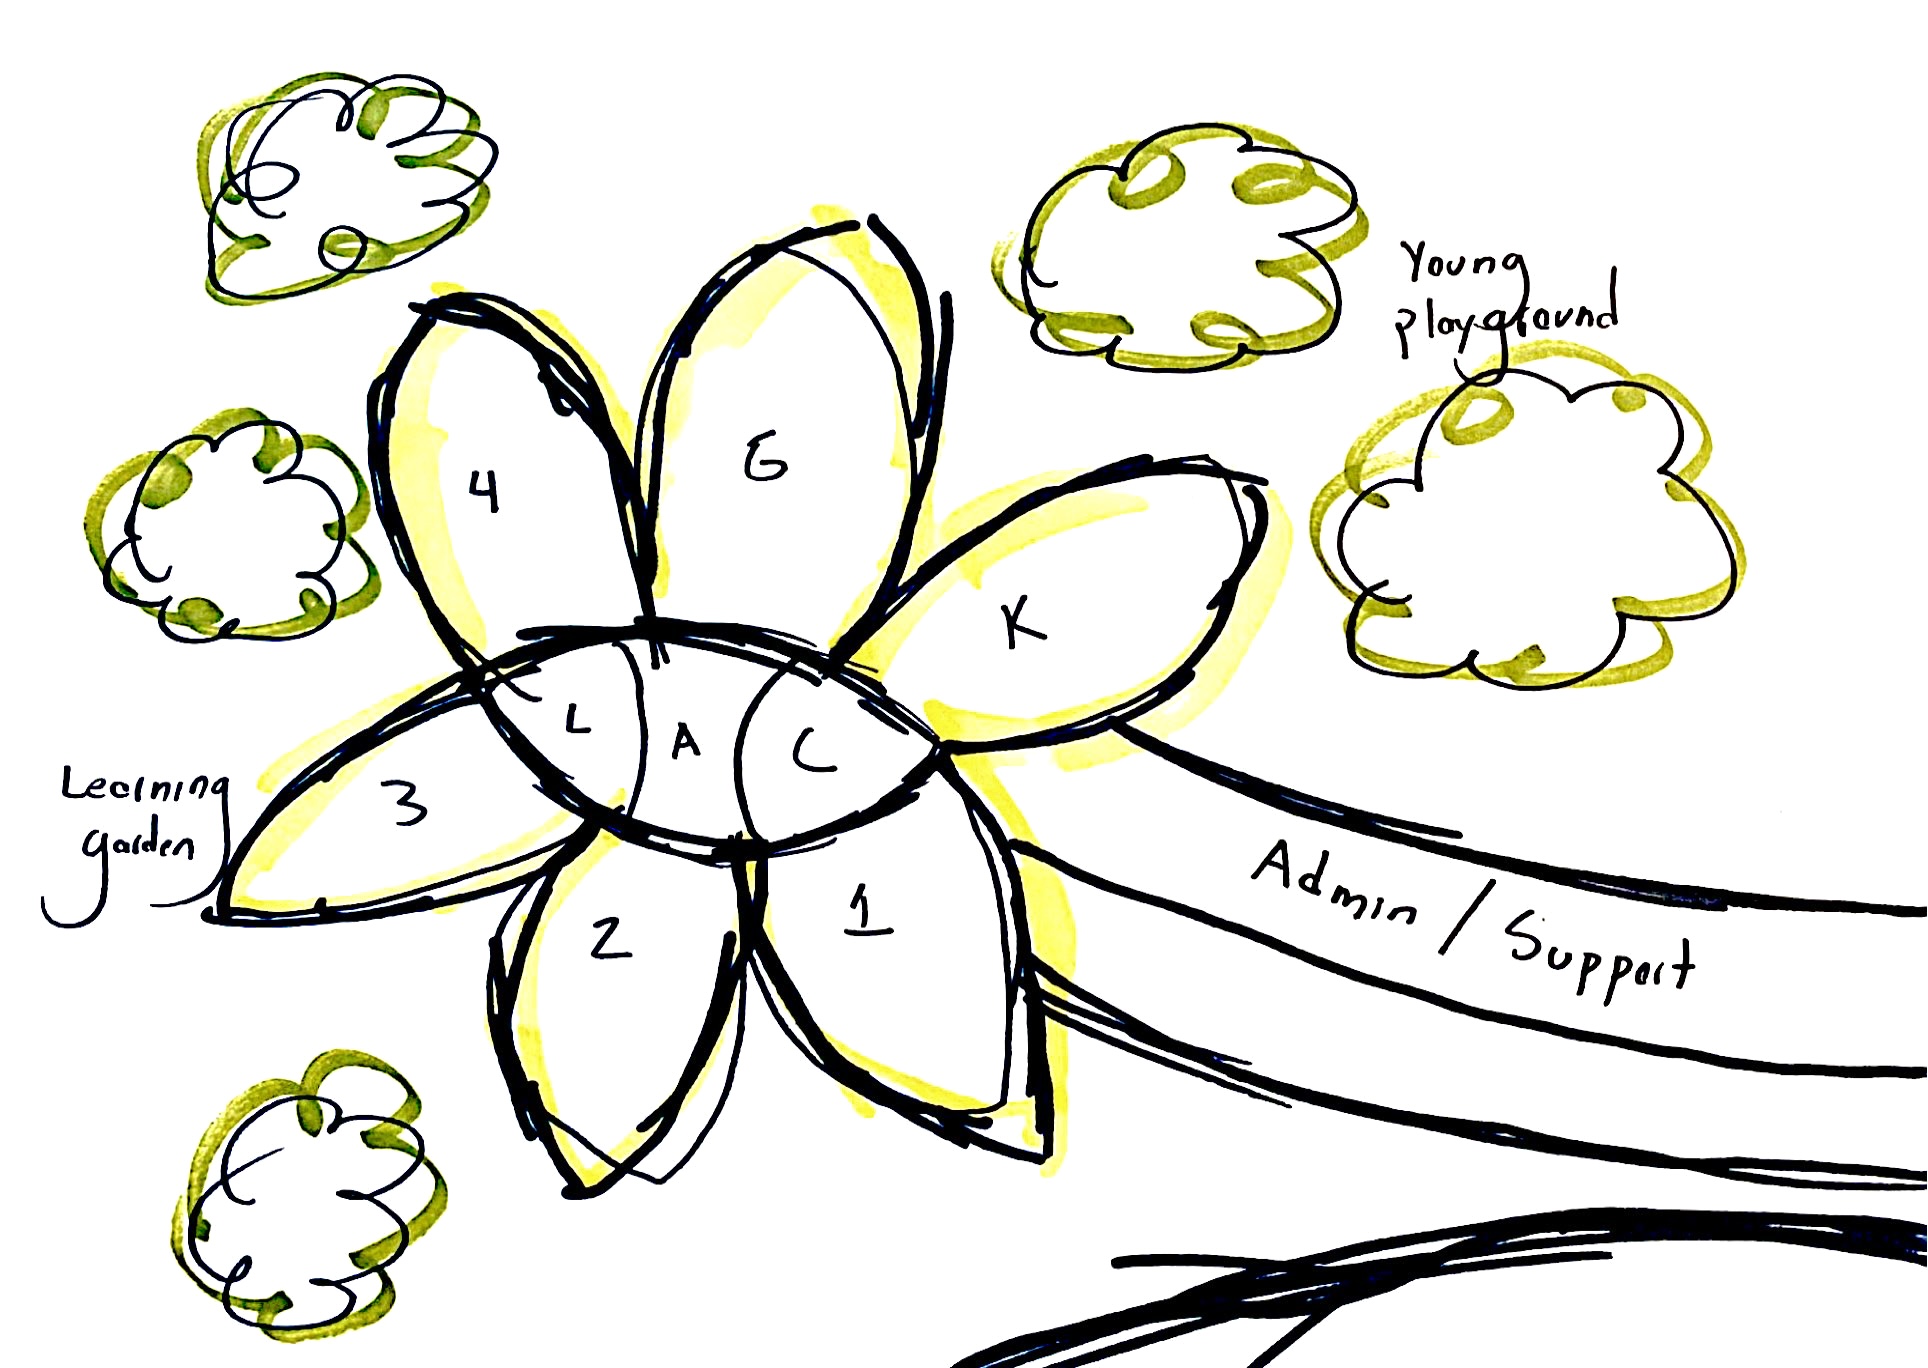 Young
playground
4
G
K
L
A
C
3
Learning
garden
2
1
Admin / Support